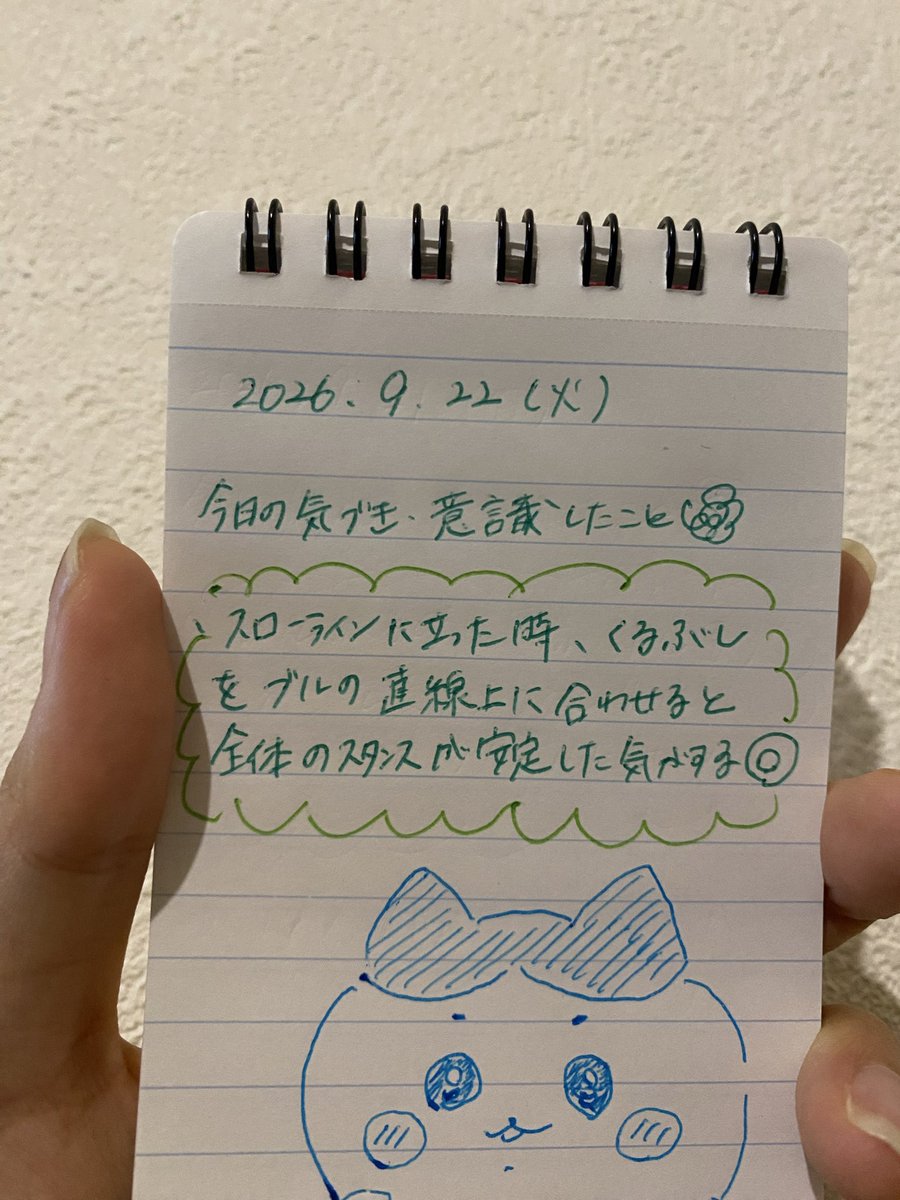 2026.9.22(火)
今日の気づき・意識したこと
・スローラインに立った時、くるぶし
をブルの直線上に合わせると
全体のスタンスが安定した気がする◎